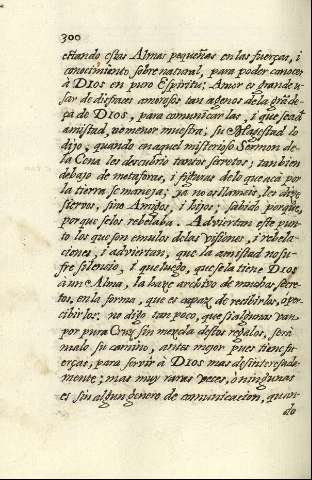 300
estando estas Almas pequeñas en las fuerças, i
conocimiento sobrenatural, para poder conocer
à DIOS en puro Espiritu: Amor es grande v-
sar de disfaces amorosos tan agenos de la grãde-
ça de DIOS, para comunicarlas, i que sea
amistad, no menor muestra; su Magestad lo
dijo, quando en aquel misterioso Sermon de
la Cena les descubrio tantos secretos; tambien
debajo de metaforas, i figuras de lo que acà por
la tierra se maneja; yà no os llamo, les dize
siervos, sino Amigos, i hijos; sabido porque,
porque se los rebelaba. Adviertan este pun-
to los que son emulos de las visiones, i rebela-
ciones, i adviertan, que la amistad no su-
fre silencio, i que luego, que se la tiene DIOS
à une Alma, la haze archivo de muchos secre-
tos, en la forma, que es capaz de recibirlos, o per-
cibirlos; no digo tan poco, que si algunas van
por pura Cruz sin mezcla destos regalos, serà
malo su camino, antes mejor pues tienẽ fu-
erças, para servir à DIOS mas desinteresada-
mente; mas muy raras veces, ò ningunas
es sin algun genero de comunicacion, quan-
do